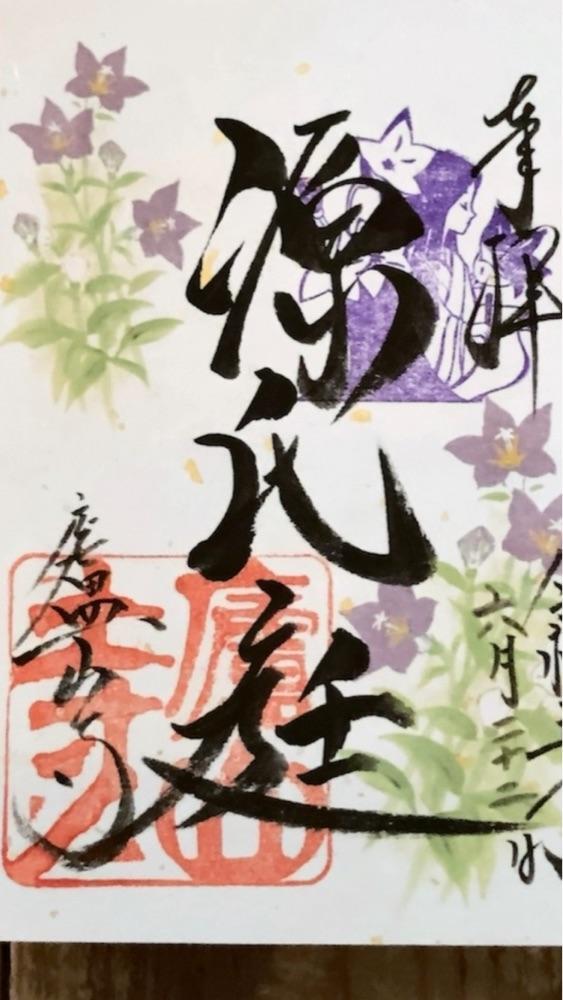 奉拝
源氏庭
六月二十二
廬山寺
廬山寺